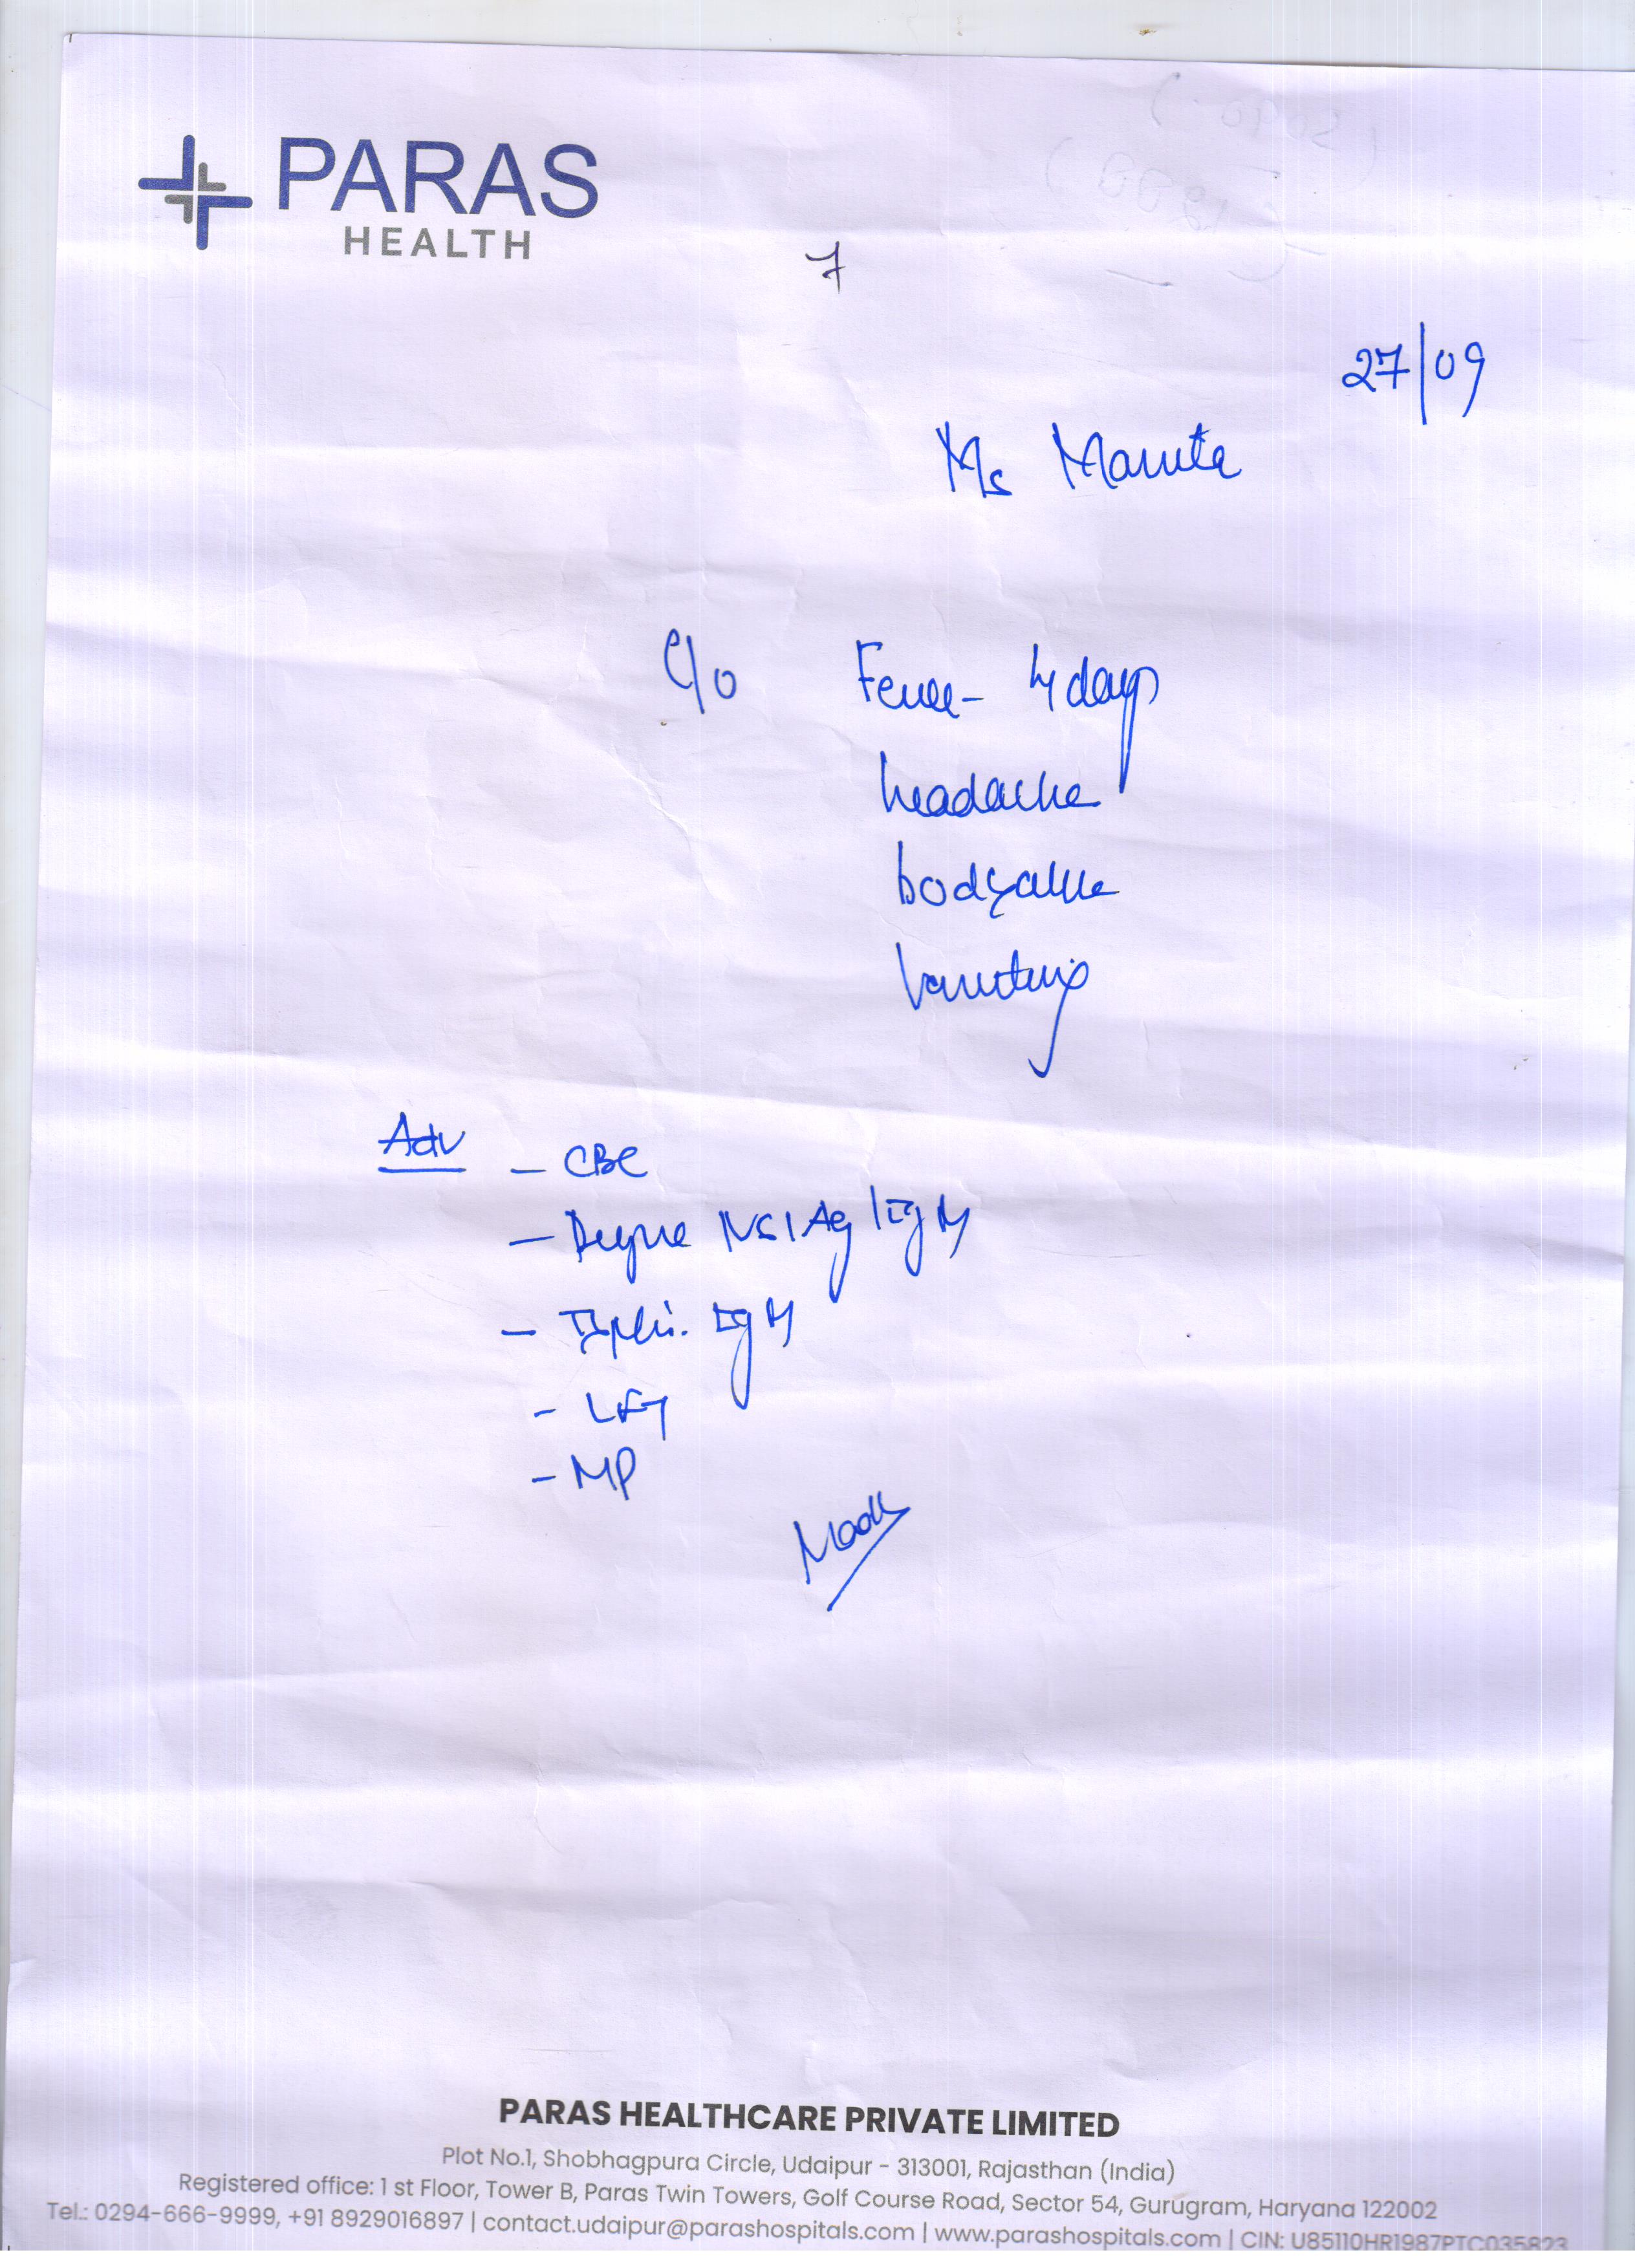 PARAS
HEALTH
7
27/09
Ms Mamta
C/o Fever - 4 days
headache
bodyache
vomiting
Adv - CBC
- Dengue NS1Ag/IgM
- Typhi. IgM
- LFT
- MP
PARAS HEALTHCARE PRIVATE LIMITED
Plot No.1, Shobhagpura Circle, Udaipur - 313001, Rajasthan (India)
Registered office: 1 st Floor, Tower B, Paras Twin Towers, Golf Course Road, Sector 54, Gurugram, Haryana 122002
Tel.: 0294-666-9999, +91 8929016897 | contact.udaipur@parashospitals.com | www.parashospitals.com | CIN: U85110HR1987PTC035823